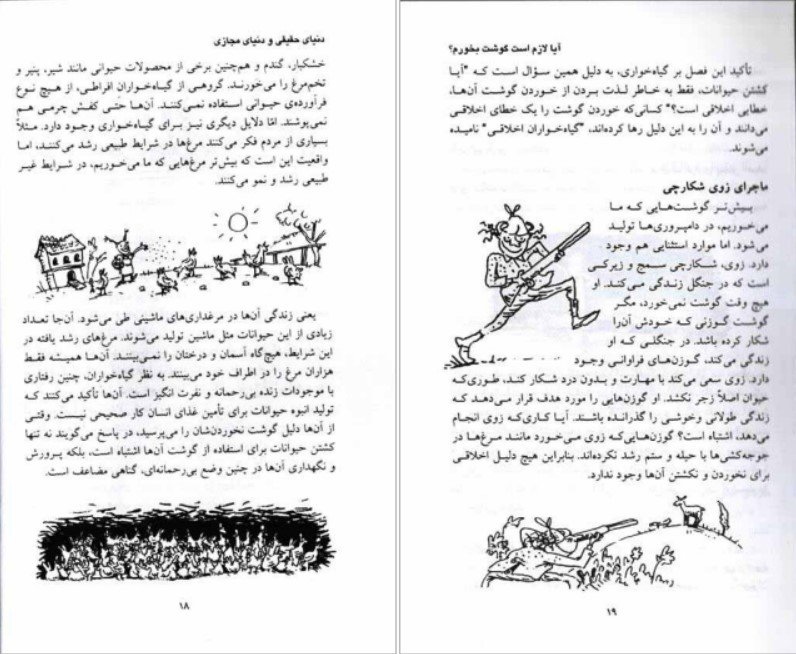 دنیای حقیقی و دنیای مجازی
خشکبار، گندم و هم‌چنین برخی از محصولات حیوانی مانند شیر، پنیر و
تخم‌مرغ را می‌خورند. گروهی از گیاه‌خواران افراطی، از هیچ نوع
فرآورده‌ی حیوانی استفاده نمی‌کنند. آن‌ها حتی کفش چرمی هم
نمی‌پوشند. امّا دلایل دیگری نیز برای گیاه‌خواری وجود دارد. مثلاً
بسیاری از مردم فکر می‌کنند مرغ‌ها در شرایط طبیعی رشد می‌کنند، اما
واقعیت این است که بیش‌تر مرغ‌هایی که ما می‌خوریم، در شرایط غیر
طبیعی رشد و نمو می‌کنند.
یعنی زندگی آن‌ها در مرغداری‌های ماشینی طی می‌شود. آن‌جا تعداد
زیادی از این حیوانات مثل ماشین تولید می‌شوند. مرغ‌های رشد یافته در
این شرایط، هیچ‌گاه آسمان و درختان را نمی‌بینند. آن‌ها همیشه فقط
هزاران مرغ را در اطراف خود می‌بینند. به نظر گیاه‌خواران، چنین رفتاری
با موجودات زنده بی‌رحمانه و نفرت انگیز است. آن‌ها تأکید می‌کنند که
تولید انبوه حیوانات برای تأمین غذای انسان کار صحیحی نیست. وقتی
از آن‌ها دلیل گوشت نخوردن‌شان را می‌پرسید، در پاسخ می‌گویند نه تنها
کشتن حیوانات برای استفاده از گوشت آن‌ها اشتباه است، بلکه پرورش
و نگهداری آن‌ها در چنین وضع بی‌رحمانه‌ای، گناهی مضاعف است.
۱۸
آیا لازم است گوشت بخورم؟
تأکید این فصل بر گیاه‌خواری، به دلیل همین سؤال است که "آیا
کشتن حیوانات، فقط به خاطر لذت بردن از خوردن گوشت آن‌ها،
خطایی اخلاقی است؟" کسانی‌که خوردن گوشت را یک خطای اخلاقی
می‌دانند و آن را به این دلیل رها کرده‌اند، "گیاه‌خواران اخلاقی" نامیده
می‌شوند.
ماجرای زوی شکارچی
بیش‌تر گوشت‌هایی که ما
می‌خوریم، در دامپروری‌ها تولید
می‌شود. اما موارد استثنایی هم وجود
دارد. زوی، شکارچی سمج و زیرکی
است که در جنگل زندگی می‌کند. او
هیچ وقت گوشت نمی‌خورد، مگر
گوشت گوزنی که خودش آن‌را
شکار کرده باشد. در جنگلی که او
زندگی می‌کند، گوزن‌های فراوانی وجود
دارد. زوی سعی می‌کند با مهارت و بدون درد شکار کند، طوری‌که
حیوان اصلاً زجر نکشد. او گوزن‌هایی را مورد هدف قرار می‌دهد که
زندگی طولانی وخوشی را گذرانده باشند. آیا کاری‌که زوی انجام
می‌دهد، اشتباه است؟ گوزن‌هایی‌که زوی می‌خورد مانند مرغ‌ها در
جوجه‌کشی‌ها با حیله و ستم رشد نکرده‌اند. بنابراین هیچ دلیل اخلاقی
برای نخوردن و نکشتن آن‌ها وجود ندارد.
۱۹